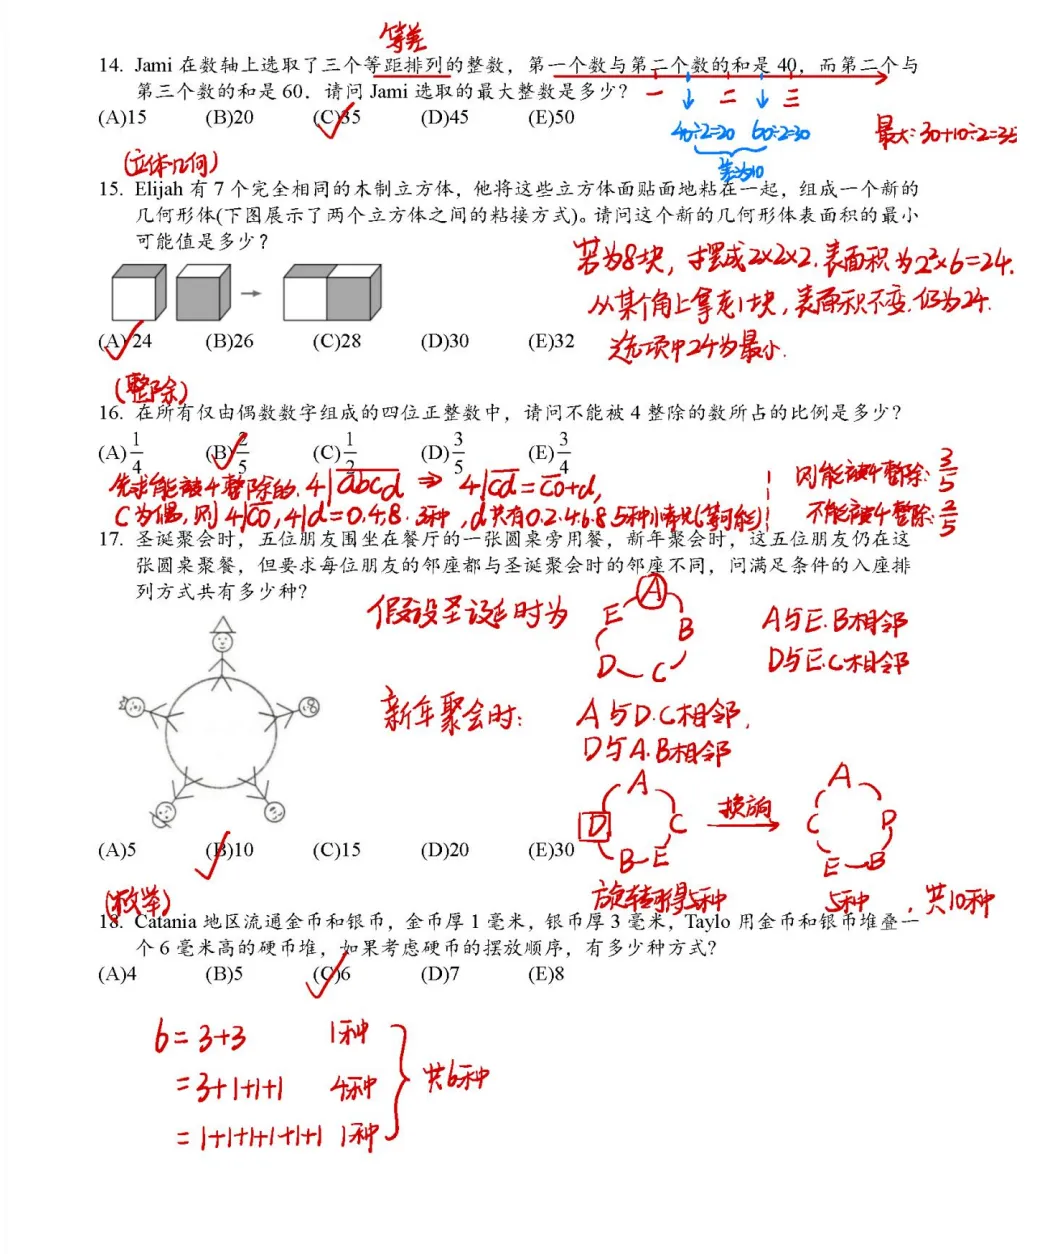 等差
14. Jami 在数轴上选取了三个等距排列的整数，第一个数与第二个数的和是 40，而第二个与
第三个数的和是 60．请问 Jami 选取的最大整数是多少？
一 二 三
(A)15 (B)20 (C)35 (D)45 (E)50
40÷2=20 60÷2=30
差为10
最大:30+10÷2=35
(立体几何)
15. Elijah 有 7 个完全相同的木制立方体，他将这些立方体面贴面地粘在一起，组成一个新的
几何形体(下图展示了两个立方体之间的粘接方式)。请问这个新的几何形体表面积的最小
可能值是多少？
若为8块，才摆成2×2×2.表面积为2²×6=24.
从某个角上拿走1块，表面积不变.仍为24.
选项中24为最小.
(A)24 (B)26 (C)28 (D)30 (E)32
(整除)
16. 在所有仅由偶数数字组成的四位正整数中，请问不能被 4 整除的数所占的比例是多少？
(A)1/4 (B)2/5 (C)1/2 (D)3/5 (E)3/4
先求能被4整除的. 4|abcd ⇒ 4|cd=c0+d,
C为偶,则 4|c0,4|d=0.4.8. 3种,d共有0.2.4.6.8 5种情况(等可能)
则能被4整除:3/5
不能被4整除:2/5
17. 圣诞聚会时，五位朋友围坐在餐厅的一张圆桌旁用餐，新年聚会时，这五位朋友仍在这
张圆桌聚餐，但要求每位朋友的邻座都与圣诞聚会时的邻座不同，问满足条件的入座排
列方式共有多少种?
假设圣诞时为
A
E B
D C
A与E.B相邻
D与E.C相邻
新年聚会时:
A与D.C相邻,
D与A.B相邻
A
D C
B E
换方向
A
C D
E B
(A)5 (B)10 (C)15 (D)20 (E)30
旋转可得5种 5种 ,共10种
(枚举)
18. Catania 地区流通金币和银币，金币厚 1 毫米，银币厚 3 毫米，Taylo 用金币和银币堆叠一
个 6 毫米高的硬币堆，如果考虑硬币的摆放顺序，有多少种方式?
(A)4 (B)5 (C)6 (D)7 (E)8
6=3+3 1种
=3+1+1+1 4种
=1+1+1+1+1+1 1种
共6种